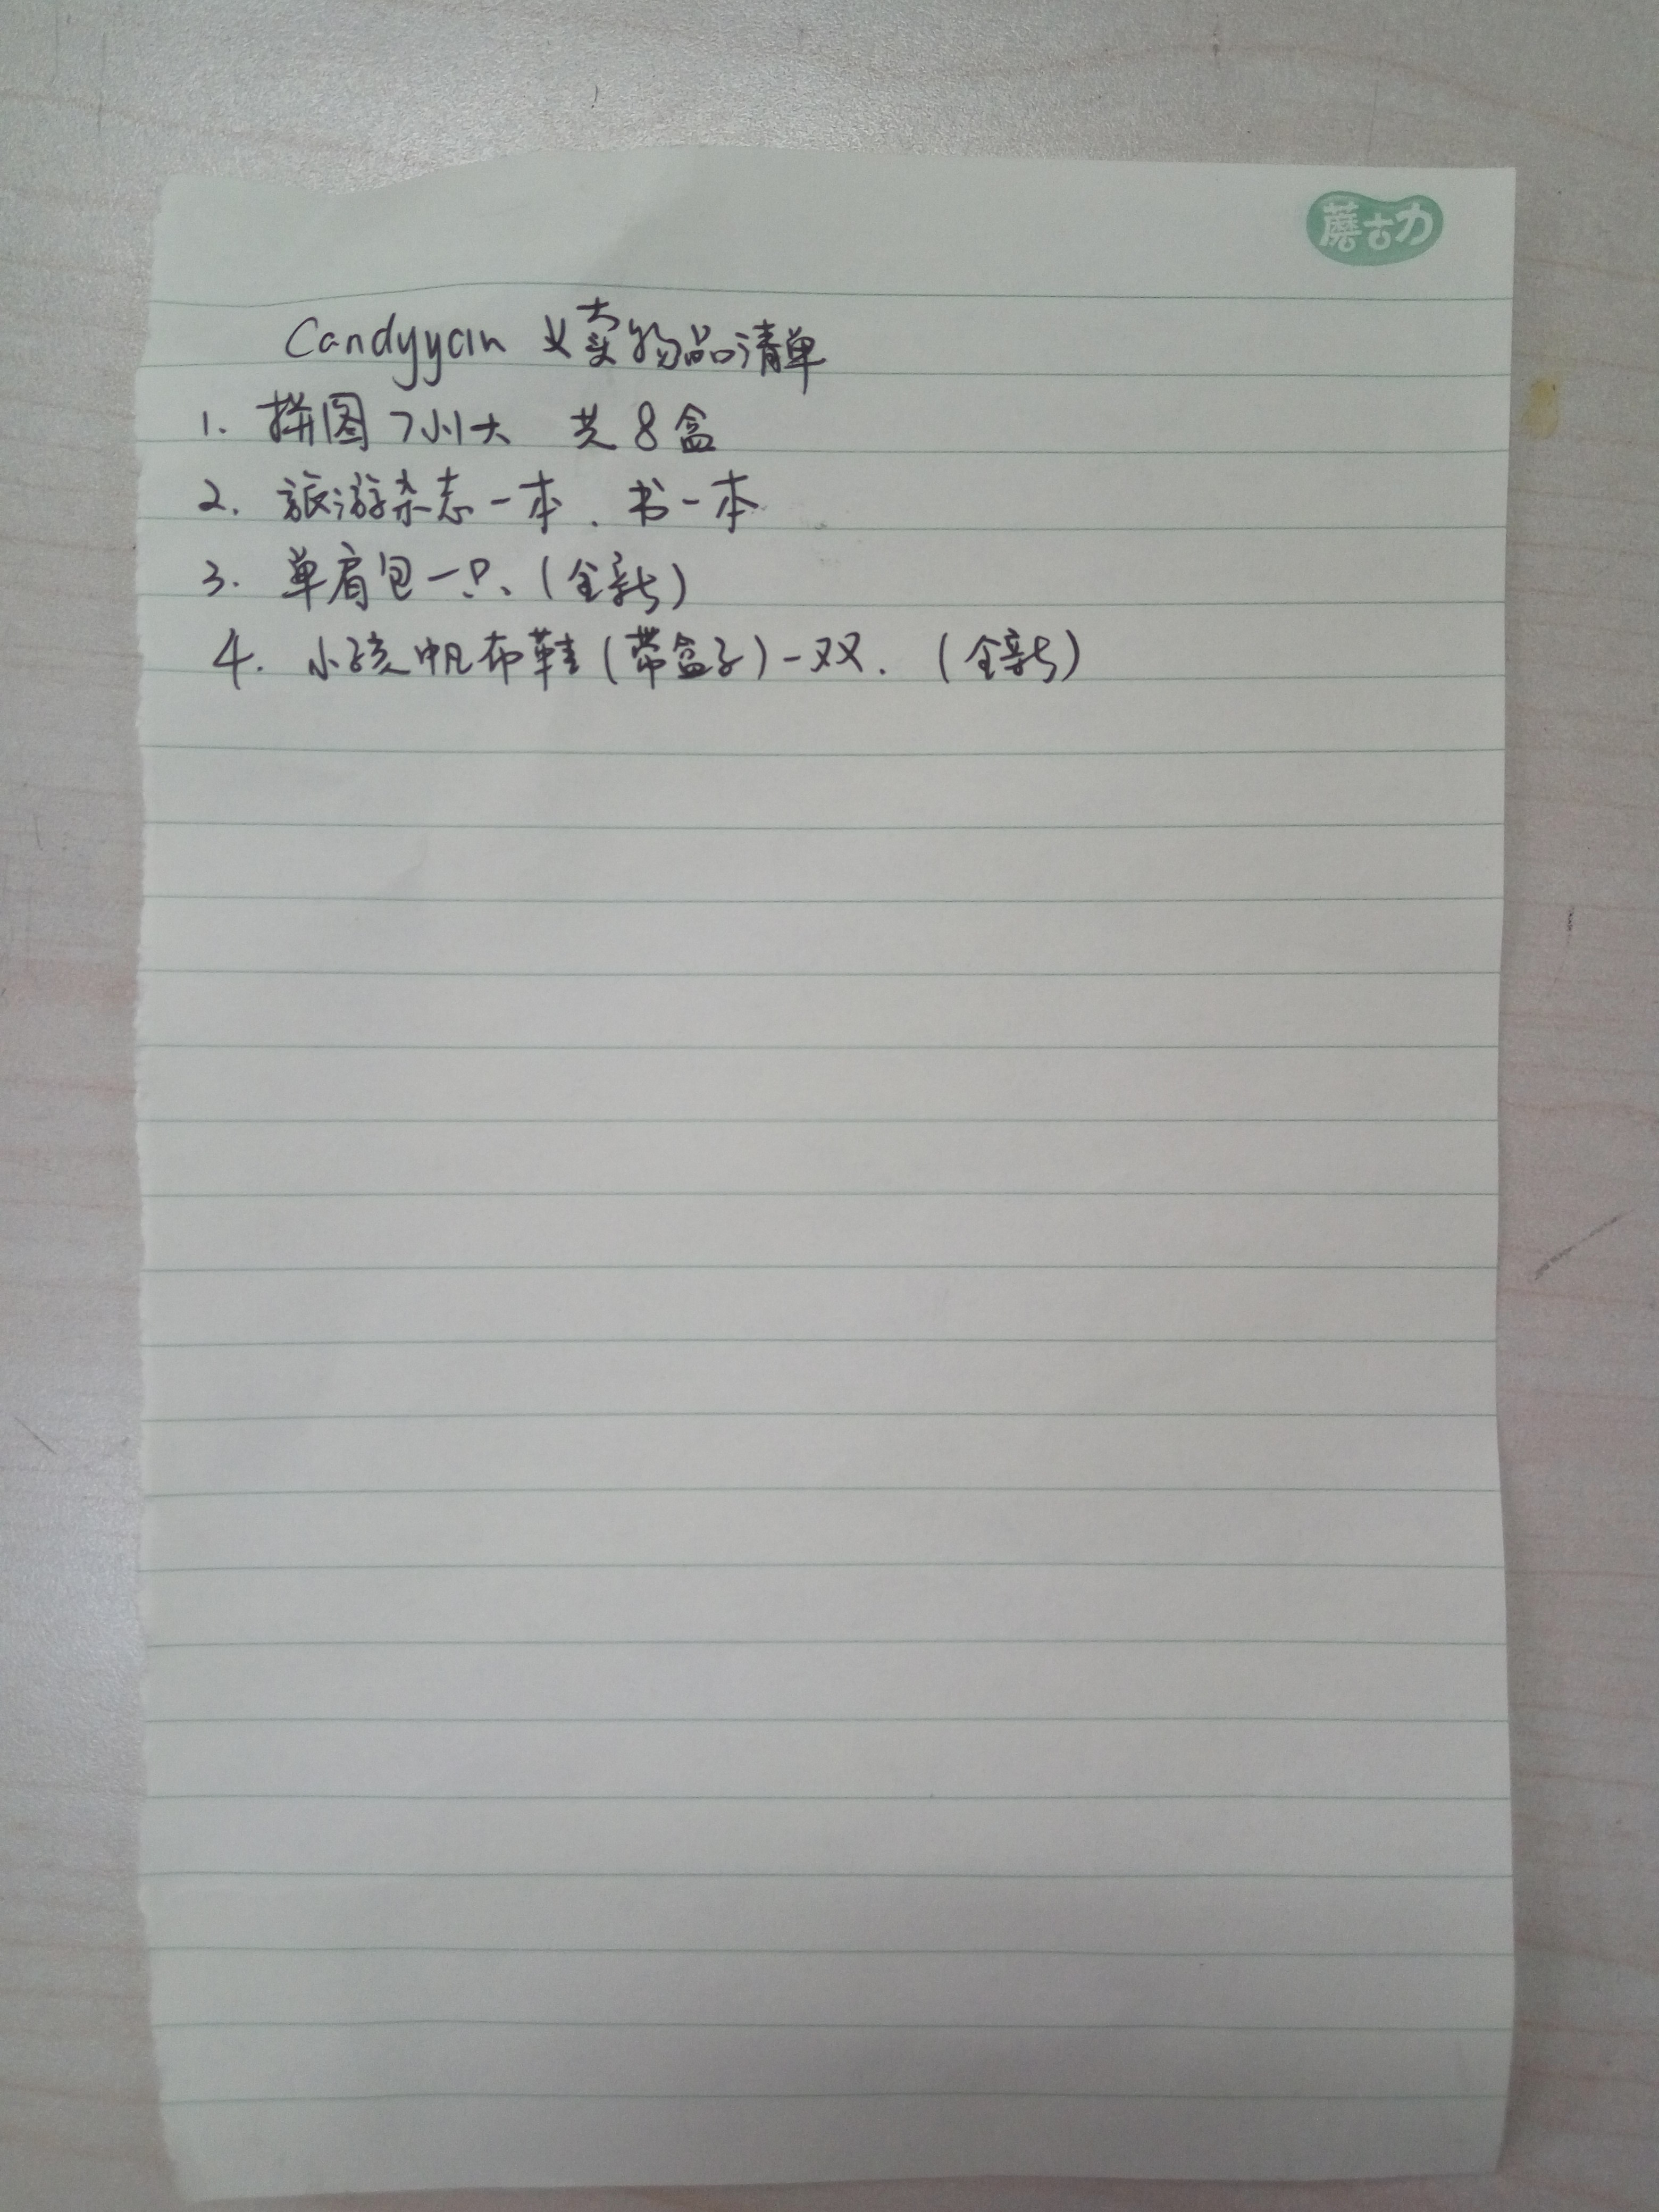 蘑古力
Candyyan 义卖物品清单
1. 拼图 7小1大 共8盒
2. 旅游杂志一本. 书一本
3. 单肩包一只. (全新)
4. 小孩帆布鞋(带盒子)一双. (全新)